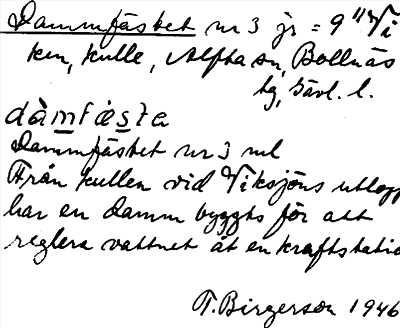 Dammfästet nr 3 jr = 9 "Vi
ken, Kulle, Alfta sn, Bollnäs
tg, Gävl. l.
dàmfæ̀sta
Dammfästet nr 3 ml
Från kullen vid Viksjöns utlopp
har en damm byggts för att
reglera vattnet åt en kraftstatio
T. Birgerson 1946